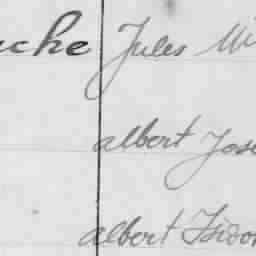 uche Jules Wi
albert Jose
albert Isidor